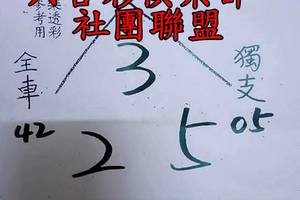 社團聯盟
參考用
3
全車
獨支
42
2
5
05